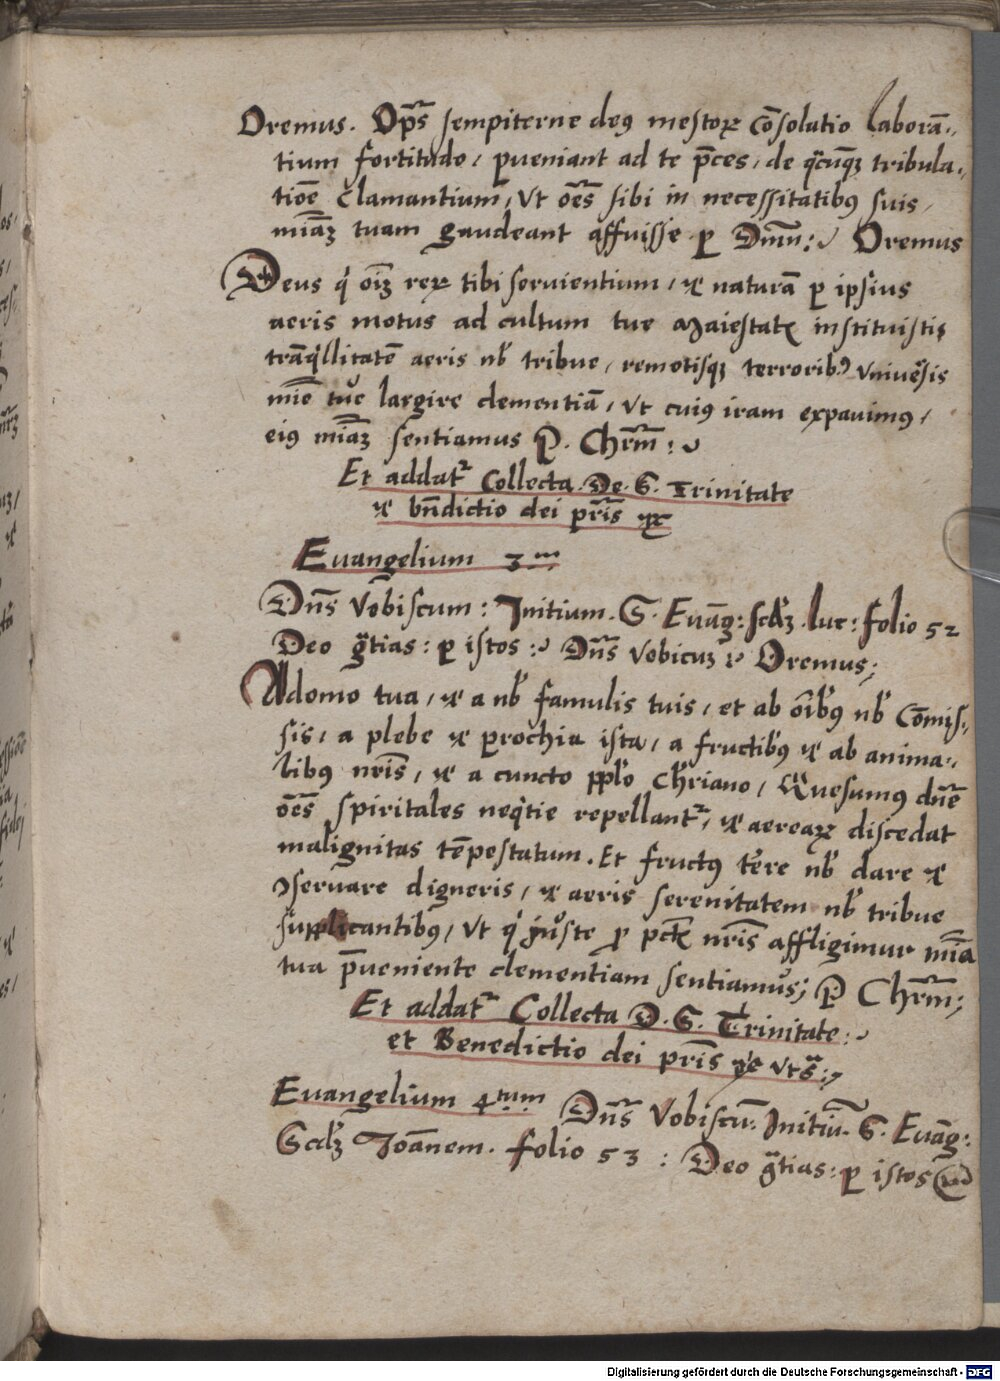 Oremus. Ops̄ sempiterne deꝰ mestoꝝ cōsolatio laborā-
tium fortitudo, ꝑueniant ad te p̄ces, de q̄cūqꝫ tribula-
tiōe Clamantium, Vt oēs sibi in necessitatibꝰ suis,
miāꝫ tuam gaudeant affuisse ꝑ Dnm̄: Oremus
Deus q' oīꝫ reꝝ tibi seruientium, & naturā ꝑ ipsius
aeris motus ad cultum tue Maiestatꝭ instituisti
trāq'llitatē aeris nb' tribue, remotisqꝫ terroribꝰ Vniuersis
mie tue largire clementiā, Vt cuiꝰ iram expauimꝰ,
eiꝰ miāꝫ sentiamus P. Chrm̄:
Et addat' Collecta. De. S. Trinitate
& bn̄dictio dei pr̄is
Euangelium 3m
Dn̄s Vobiscum: Initium. S. Euāg: scd'ꝫ. luc: folio 52
Deo gr̄tias: ꝑ istos: Dn̄s Vobicuꝫ Oremus;
A domo tua, & a nb' famulis tuis, et ab oībꝰ nb' Cōmis-
sis, a plebe & ꝑrochia ista, a fructibꝰ & ab anima-
libꝰ nr̄is, & a cuncto pp'lo Chr'iano, Quesumus dn̄e
oēs spiritales neq'tie repellant', & aereaꝝ discedat
malignitas tēpestatum. Et fructꝰ terre nb' dare &
ꝯseruare digneris, & aeris serenitatem nb' tribue
supplicantibꝰ, Vt q' iuste ꝓ pctꝭ nr̄is affligimur miā
tua p̄ueniente clementiam sentiamus; P Chrm̄;
Et addat' Collecta D. S. Trinitate:
et Benedictio dei pr̄is &c Vts̄:
Euangelium 4tum Dn̄s Vobiscū: Initiū. S. Euāg:
Scd'ꝫ Joānem. folio 53: Deo gr̄tias: ꝑ istos
Digitalisierung gefördert durch die Deutsche Forschungsgemeinschaft - DFG